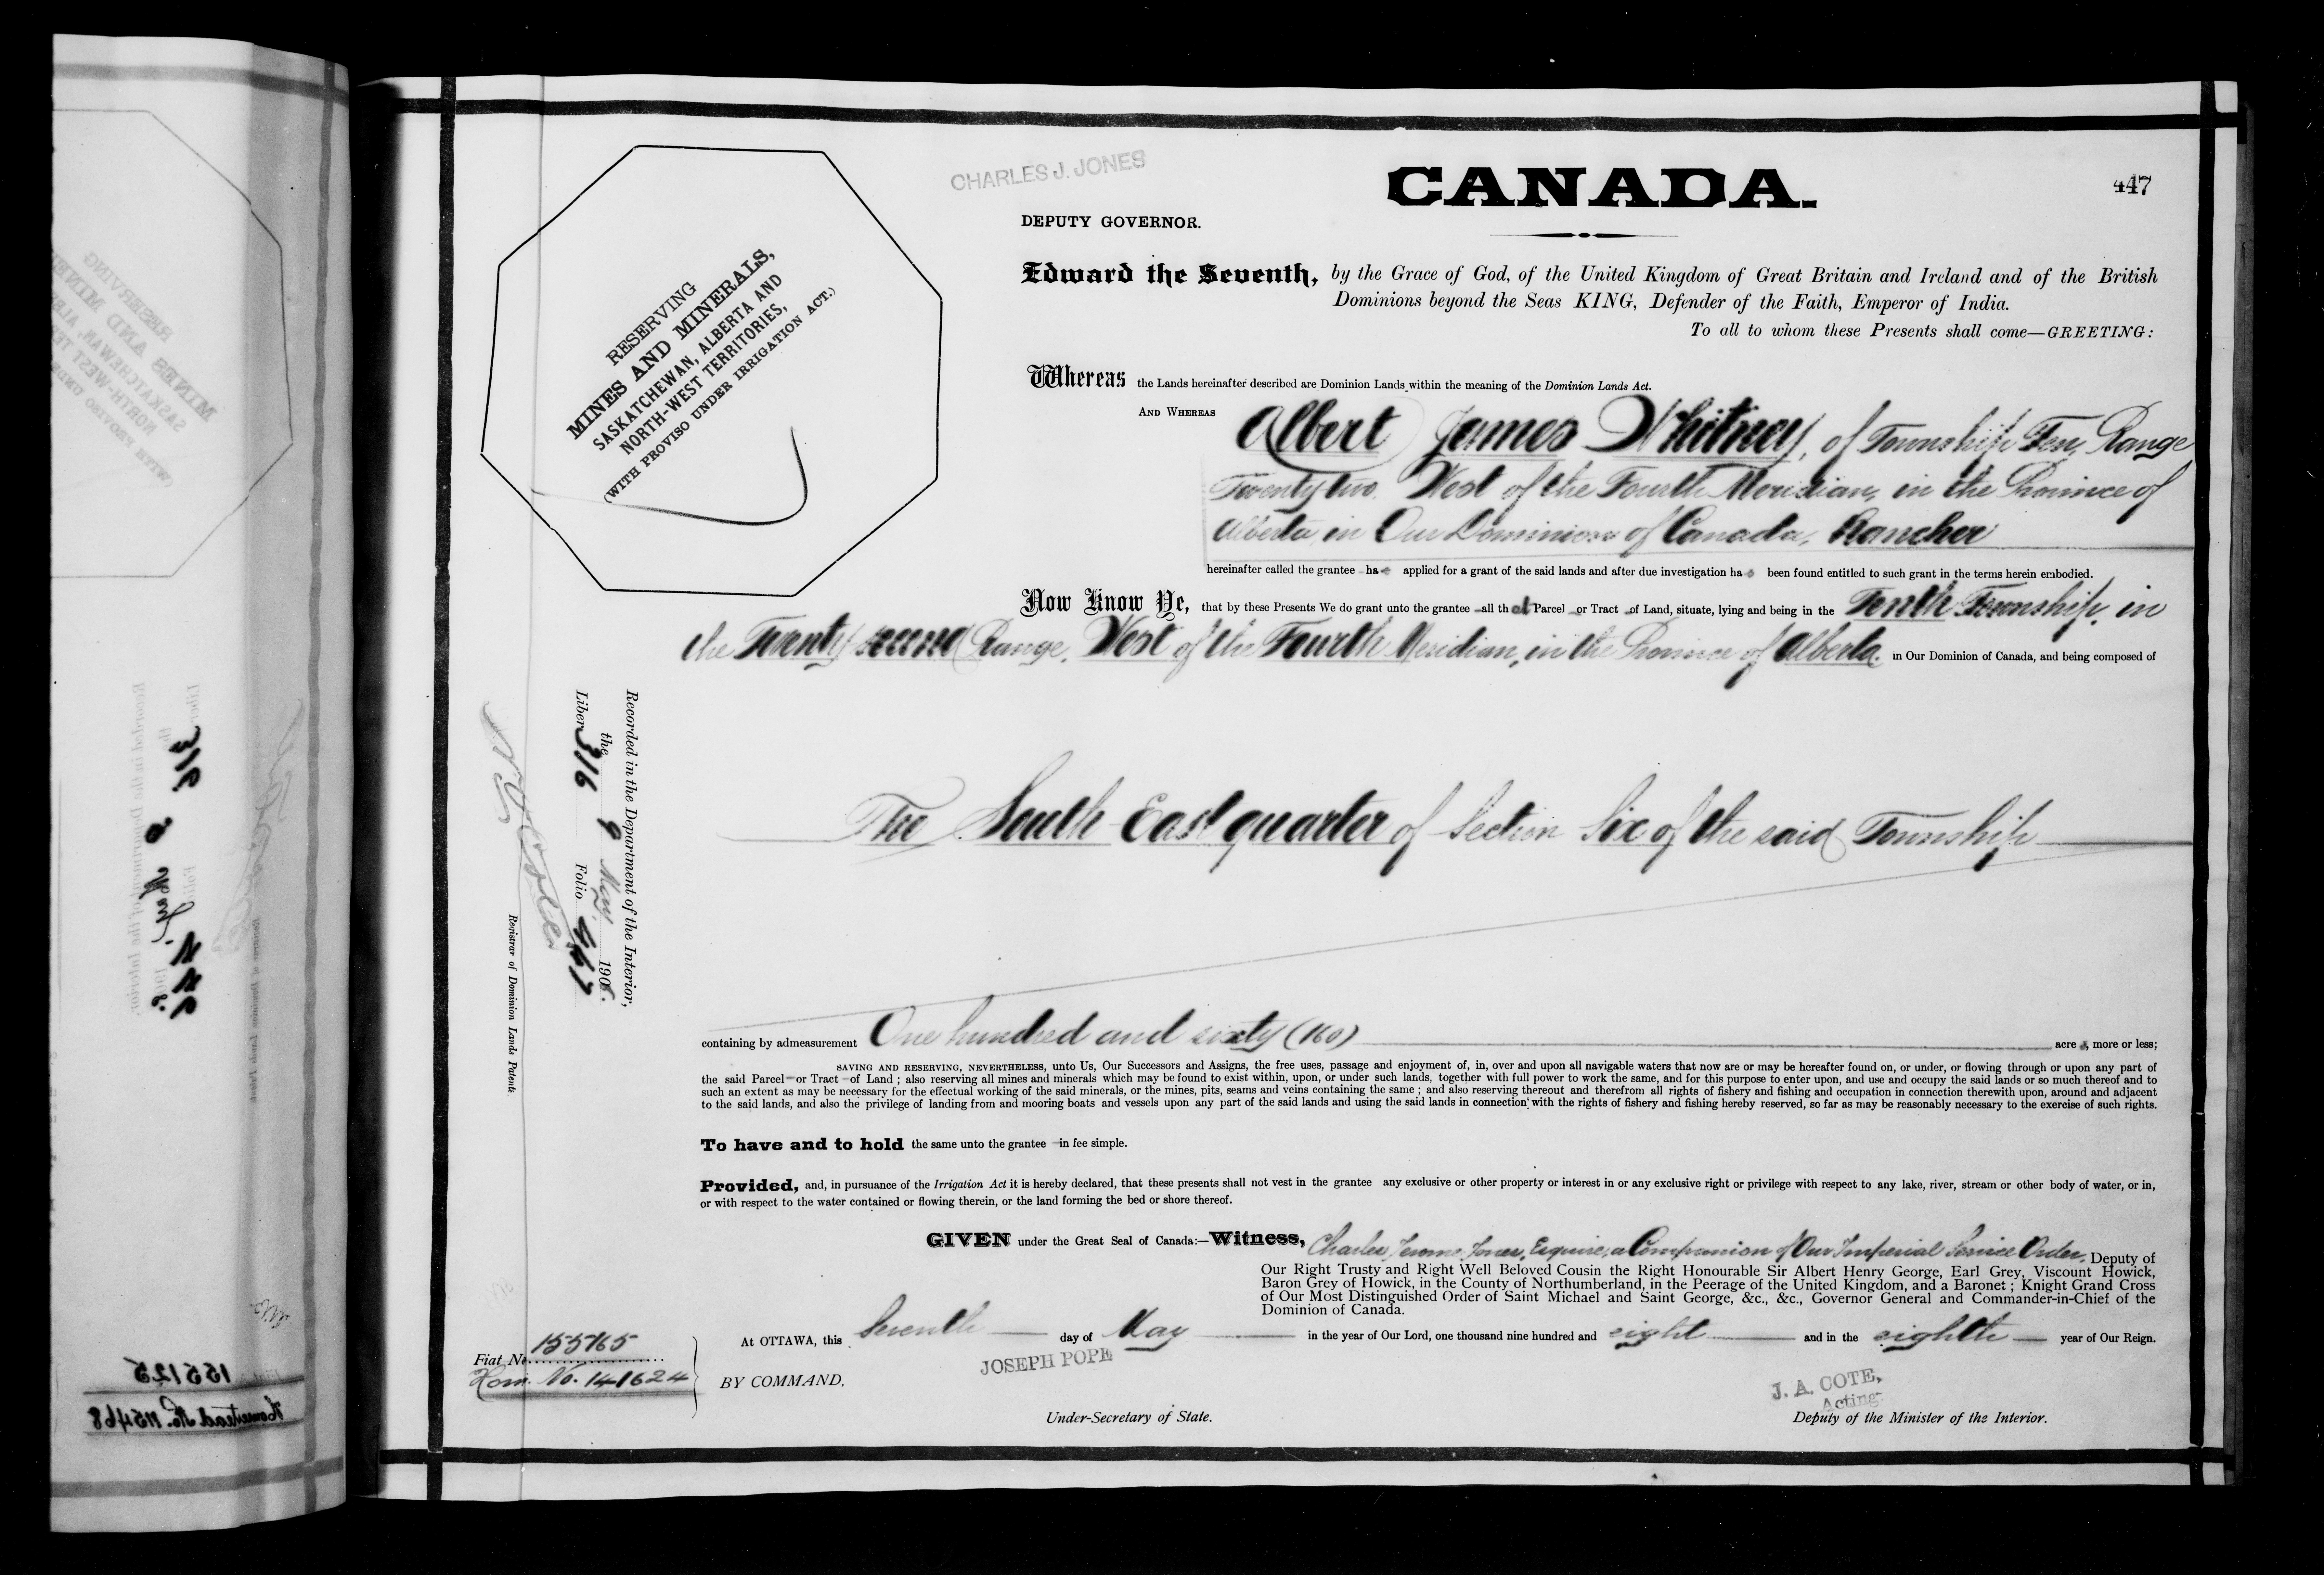 CHARLES J. JONES
CANADA.
447
DEPUTY GOVERNOR.
Edward the Seventh, by the Grace of God, of the United Kingdom of Great Britain and Ireland and of the British
Dominions beyond the Seas KING, Defender of the Faith, Emperor of India.
To all to whom these Presents shall come—GREETING:
RESERVING
MINES AND MINERALS,
SASKATCHEWAN, ALBERTA AND
NORTH-WEST TERRITORIES,
(WITH PROVISO UNDER IRRIGATION ACT.)
Whereas the Lands hereinafter described are Dominion Lands within the meaning of the Dominion Lands Act.
AND WHEREAS Albert James Whitney, of Township Ten, Range
Twenty two West of the Fourth Meridian, in the Province of
Alberta, in Our Dominion of Canada, Rancher
hereinafter called the grantee has applied for a grant of the said lands and after due investigation has been found entitled to such grant in the terms herein embodied.
Now Know Ye, that by these Presents We do grant unto the grantee all that Parcel or Tract of Land, situate, lying and being in the Tenth Township, in
the Twenty second Range, West of the Fourth Meridian, in the Province of Alberta. in Our Dominion of Canada, and being composed of
The South East quarter of Section Six of the said Township
Recorded in the Department of the Interior,
the 9 May 1908.
Liber 316 Folio 447
Registrar of Dominion Lands Patents.
containing by admeasurement One hundred and sixty (160) acres, more or less;
SAVING AND RESERVING, NEVERTHELESS, unto Us, Our Successors and Assigns, the free uses, passage and enjoyment of, in, over and upon all navigable waters that now are or may be hereafter found on, or under, or flowing through or upon any part of
the said Parcel or Tract of Land; also reserving all mines and minerals which may be found to exist within, upon, or under such lands, together with full power to work the same, and for this purpose to enter upon, and use and occupy the said lands or so much thereof and to
such an extent as may be necessary for the effectual working of the said minerals, or the mines, pits, seams and veins containing the same; and also reserving thereout and therefrom all rights of fishery and fishing and occupation in connection therewith upon, around and adjacent
to the said lands, and also the privilege of landing from and mooring boats and vessels upon any part of the said lands and using the said lands in connection with the rights of fishery and fishing hereby reserved, so far as may be reasonably necessary to the exercise of such rights.
To have and to hold the same unto the grantee in fee simple.
Provided, and, in pursuance of the Irrigation Act it is hereby declared, that these presents shall not vest in the grantee any exclusive or other property or interest in or any exclusive right or privilege with respect to any lake, river, stream or other body of water, or in,
or with respect to the water contained or flowing therein, or the land forming the bed or shore thereof.
GIVEN under the Great Seal of Canada:—Witness, Charles Jerome Jones, Esquire, a Companion of Our Imperial Service Order, Deputy of
Our Right Trusty and Right Well Beloved Cousin the Right Honourable Sir Albert Henry George, Earl Grey, Viscount Howick,
Baron Grey of Howick, in the County of Northumberland, in the Peerage of the United Kingdom, and a Baronet; Knight Grand Cross
of Our Most Distinguished Order of Saint Michael and Saint George, &c., &c., Governor General and Commander-in-Chief of the
Dominion of Canada.
At OTTAWA, this Seventh day of May in the year of Our Lord, one thousand nine hundred and eight and in the eighth year of Our Reign.
Fiat No. 155165
Hom. No. 141624
BY COMMAND,
JOSEPH POPE
Under-Secretary of State.
J. A. COTE,
Acting
Deputy of the Minister of the Interior.
155125
Homestead No. 115468